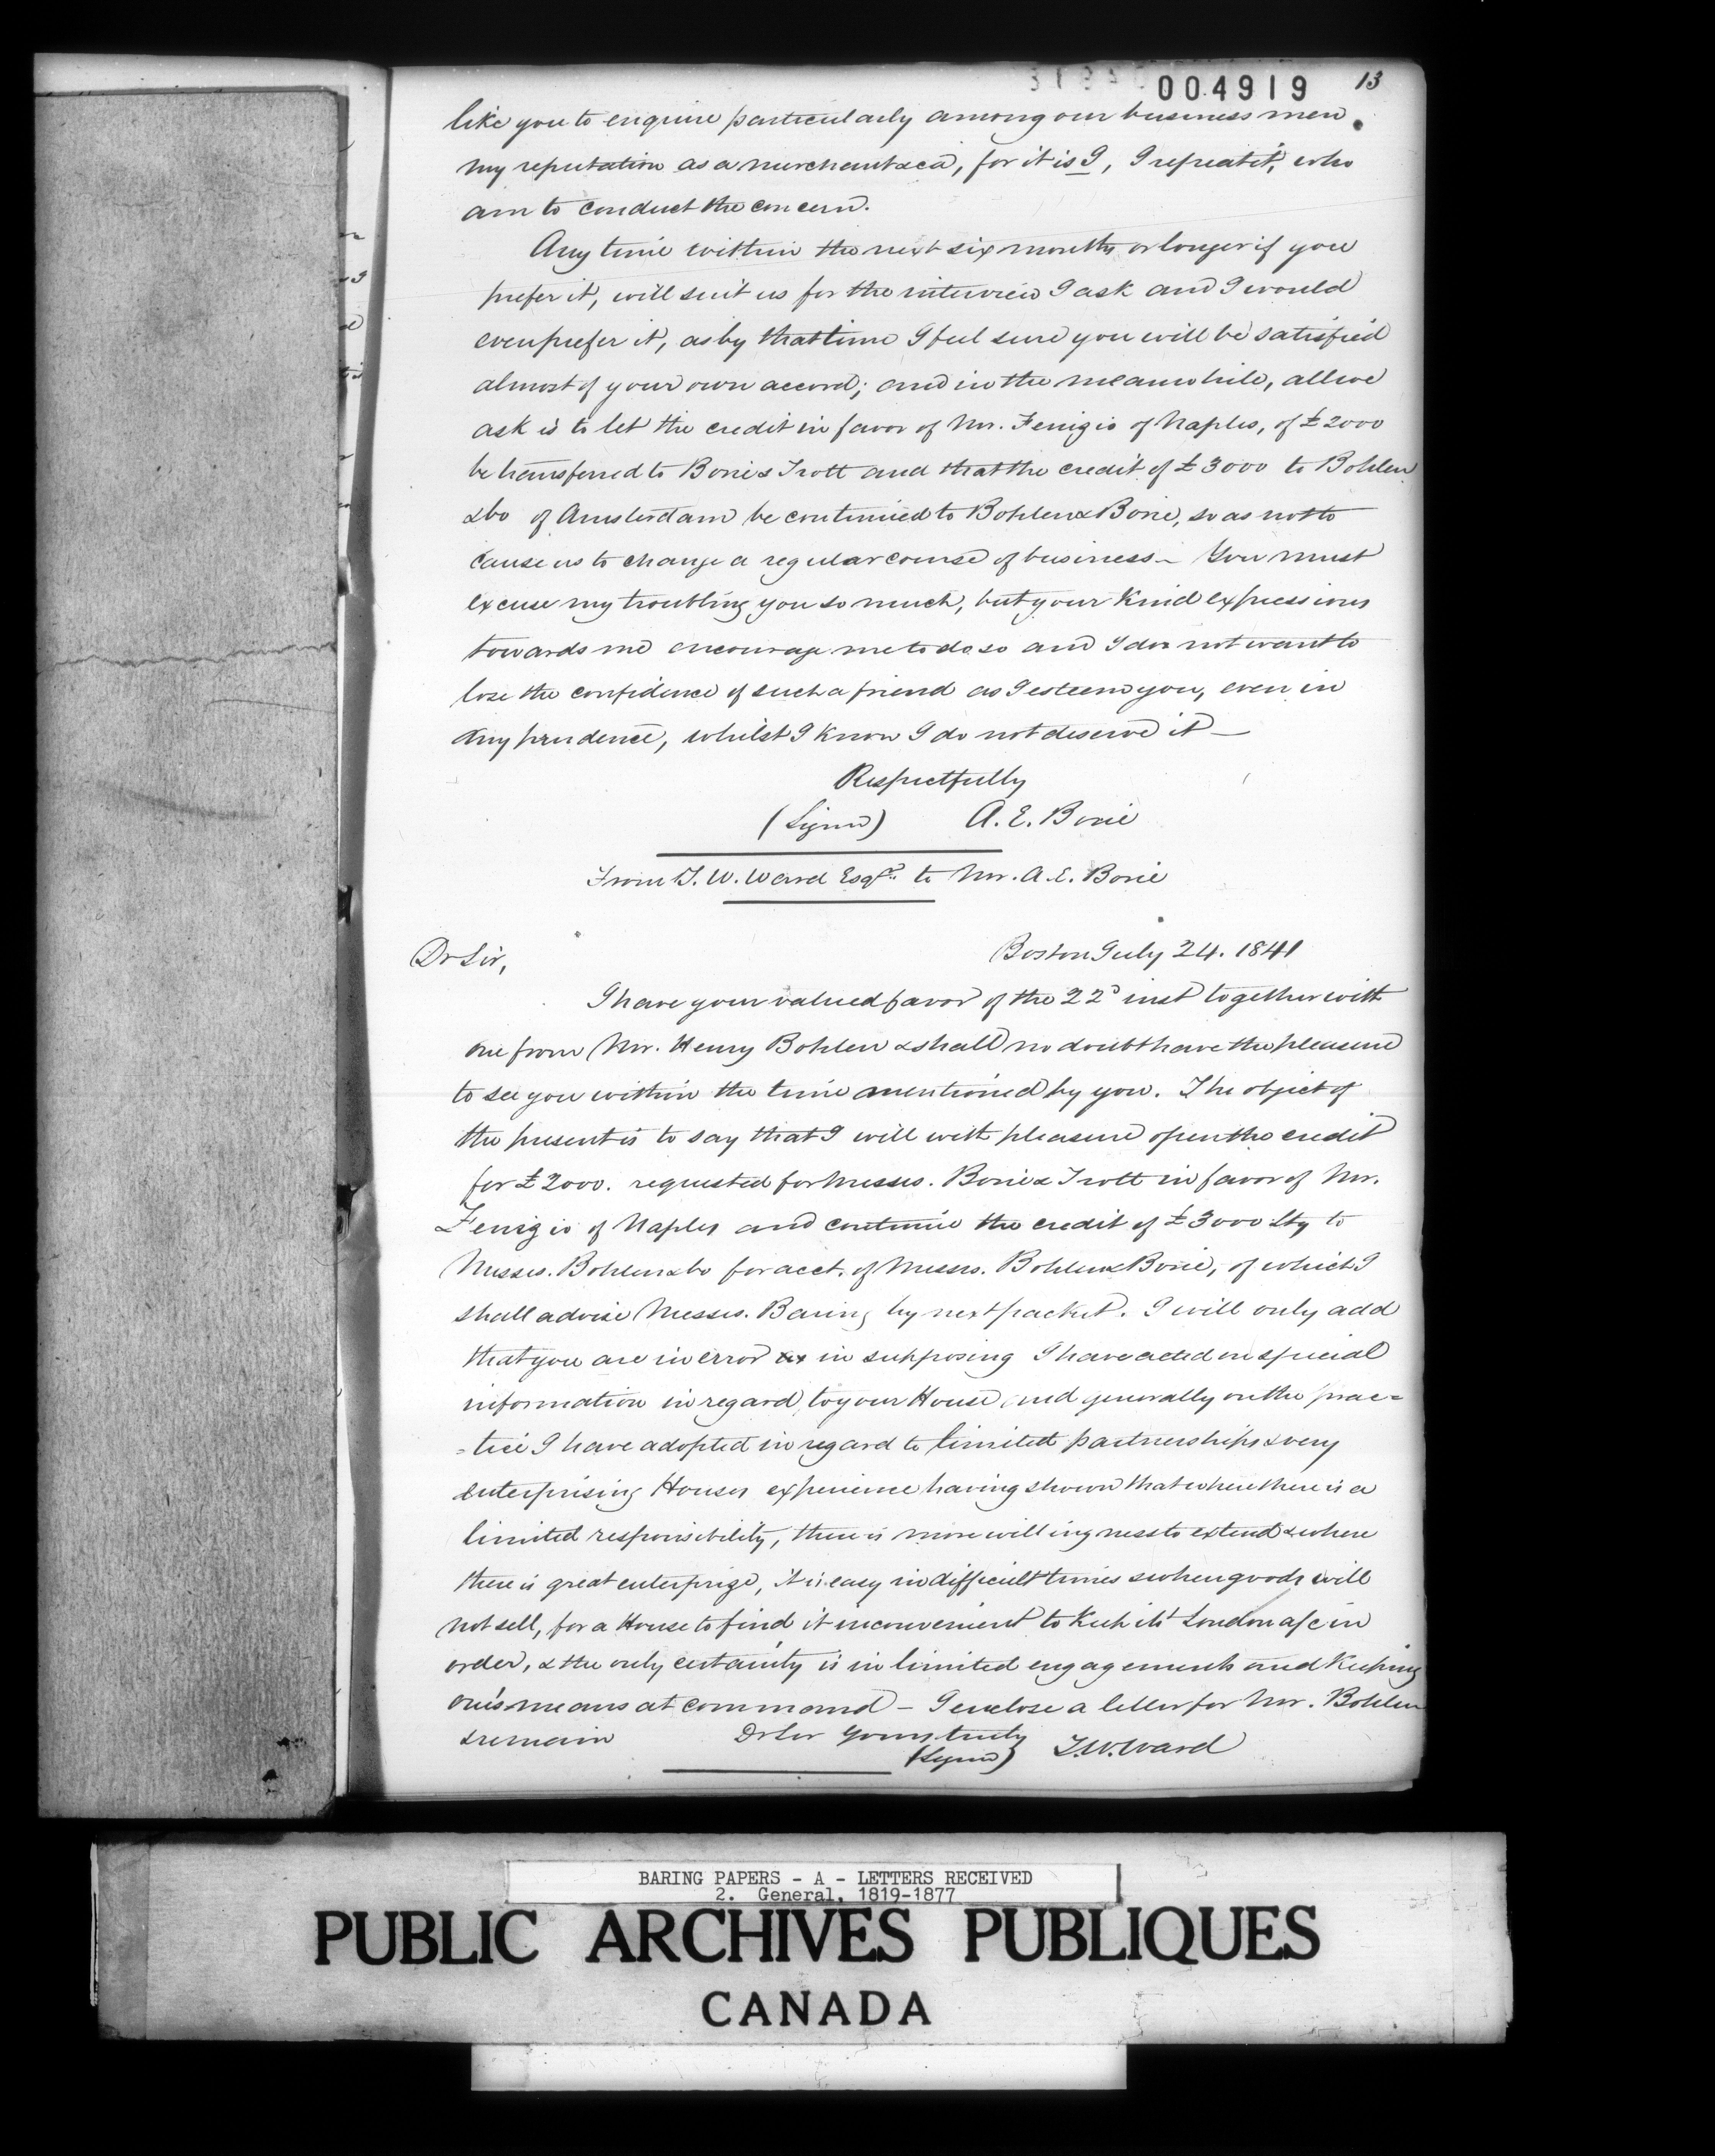 004919 13
like you to enquire particularly among our business men
my reputation as a merchant &ca, for it is I, I repeat it, who
am to conduct the concern.
Any time within the next six months or longer if you
prefer it, will suit us for the interview I ask and I would
even prefer it, as by that time I feel sure you will be satisfied
almost of your own accord; and in the meanwhile, all we
ask is to let the credit in favor of Mr. Fenizio of Naples, of £2000
be transferred to Borie & Trott and that the credit of £3000 to Bohlen
& Co of Amsterdam be continued to Bohlen & Borie, so as not to
cause us to change a regular course of business - You must
excuse my troubling you so much, but your kind expressions
towards me encourage me to do so and I do not want to
lose the confidence of such a friend as I esteem you, even in
any prudence, whilst I know I do not deserve it -
Respectfully
(Signed) A. E. Borie
From T. W. Ward Esqr. to Mr. A. E. Borie
Boston July 24. 1841
Dr Sir,
I have your valued favor of the 22d inst together with
one from Mr. Henry Bohlen & shall no doubt have the pleasure
to see you within the time mentioned by you. The object of
the present is to say that I will with pleasure open the credit
for £2000. requested for Messrs. Borie & Trott in favor of Mr.
Fenizio of Naples and continue the credit of £3000 Stg to
Messrs. Bohlen & Co for acct. of Messrs. Bohlen & Borie, of which I
shall advise Messrs. Baring by next packet. I will only add
that you are in error in supposing I have acted on special
information in regard to your House and generally on the prac=
=tice I have adopted in regard to limited partnerships & very
enterprising Houses experience having shown that where there is a
limited responsibility, there is more willingness to extend & where
there is great enterprize, it is easy in difficult times & when goods will
not sell, for a House to find it inconvenient to keep its London a/c in
order, & the only certainty is in limited engagements and keeping
one's means at command - I enclose a letter for Mr. Bohlen
& remain Dr Sir Yours truly
(Signed) T. W. Ward
BARING PAPERS - A - LETTERS RECEIVED
2. General, 1819-1877
PUBLIC ARCHIVES PUBLIQUES
CANADA